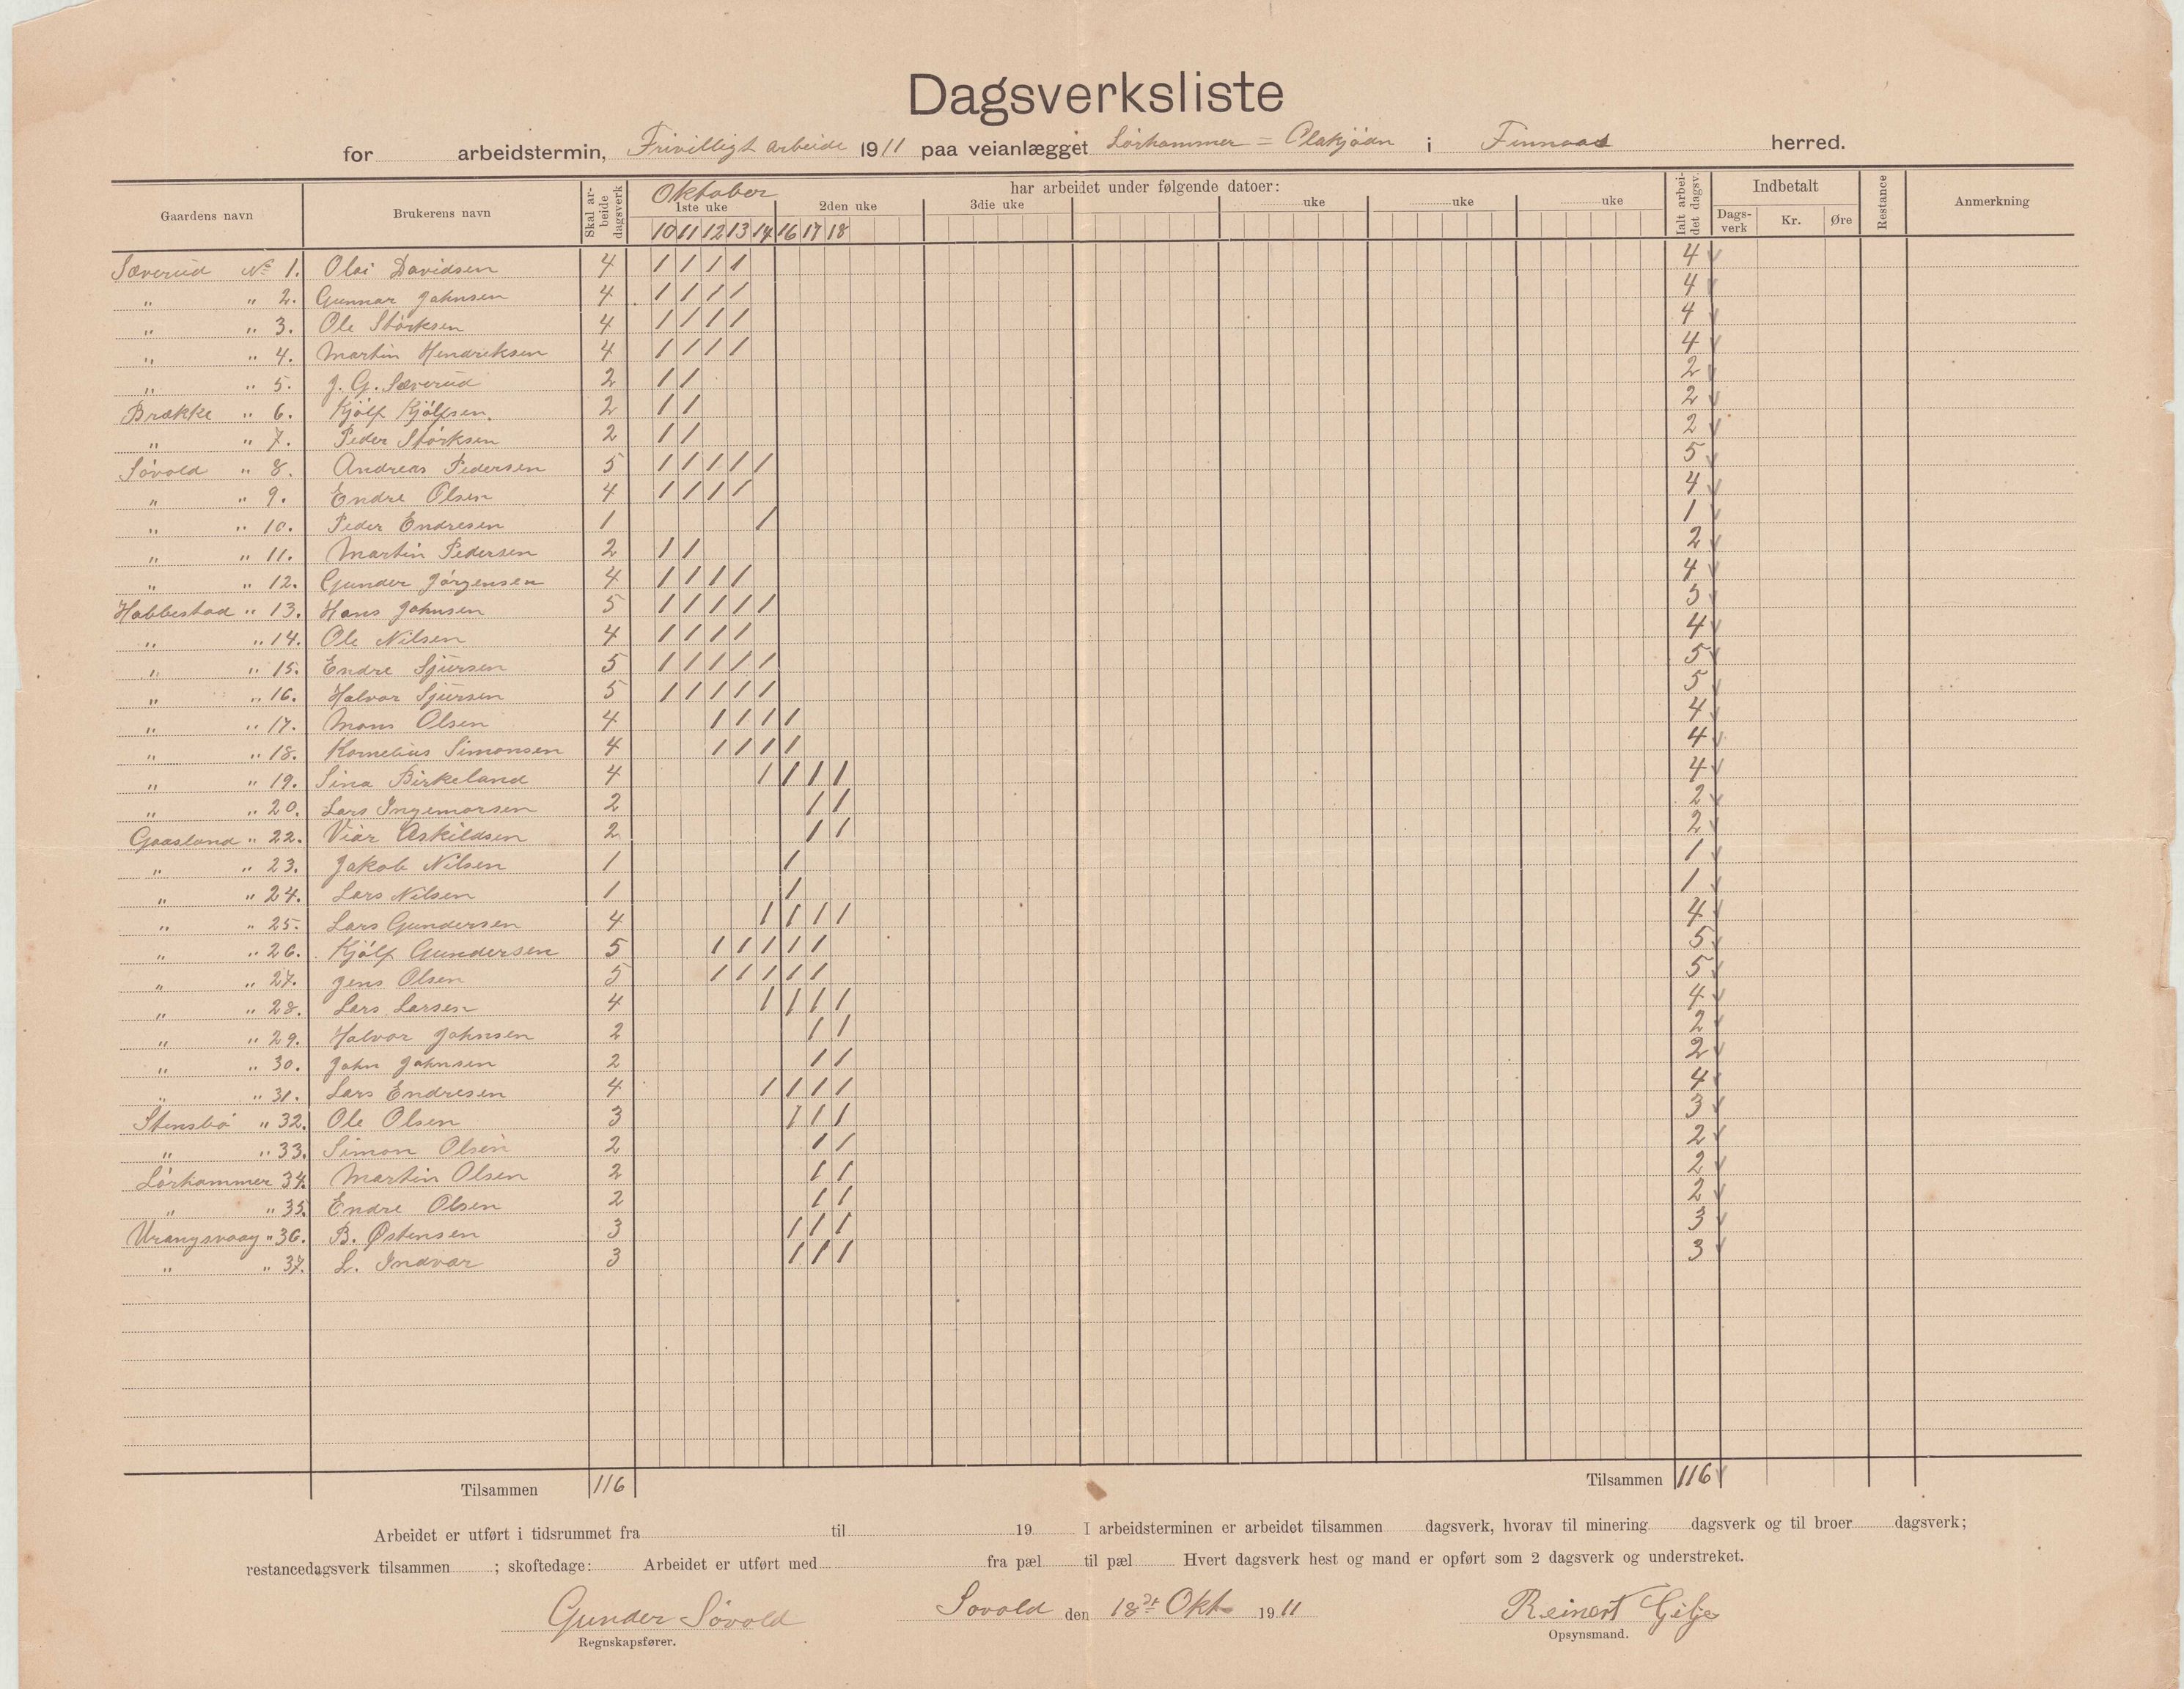 Dagsverksliste
for arbeidstermin, Frivilligt arbeide 1911 paa veianlægget Lörhammer = Olakjödn i Finnaas herred.
Gaardens navn Brukerens navn Skal arbeide dagsverk Oktober har arbeidet under følgende datoer: Ialt arbeidet dagsv. Indbetalt Restance Anmerkning
1ste uke 2den uke 3die uke uke uke uke Dagsverk Kr. Øre
10 11 12 13 14 16 17 18
Sæverud No 1. Olai Davidsen 4 / / / / 4
" " 2. Gunnar Johnsen 4 / / / / 4
" " 3. Ole Störksen 4 / / / / 4
" " 4. Martin Hendriksen 4 / / / / 4
" " 5. J. G. Sæverud 2 / / 2
Brække " 6. Kjölf Kjölfsen. 2 / / 2
" " 7. Peder Störksen 2 / / 2
Sövold " 8. Andreas Pedersen 5 / / / / / 5
" " 9. Endre Olsen 4 / / / / 4
" " 10. Peder Endresen 1 / 1
" " 11. Martin Pedersen 2 / / 2
" " 12. Gunder Jörgensen 4 / / / / 4
Habbestad " 13. Hans Johnsen 5 / / / / / 5
" " 14. Ole Nilsen 4 / / / / 4
" " 15. Endre Sjursen 5 / / / / / 5
" " 16. Halvor Sjursen 5 / / / / / 5
" " 17. Mons Olsen 4 / / / / 4
" " 18. Kornelius Simonsen 4 / / / / 4
" " 19. Sina Birkeland 4 / / / / 4
" " 20. Lars Ingemarsen 2 / / 2
Gaasland " 22. Viar Askildsen 2 / / 2
" " 23. Jakob Nilsen 1 / 1
" " 24. Lars Nilsen 1 / 1
" " 25. Lars Gundersen 4 / / / / 4
" " 26. Kjölf Gundersen 5 / / / / / 5
" " 27. Jens Olsen 5 / / / / / 5
" " 28. Lars Larsen 4 / / / / 4
" " 29. Halvor Johnsen 2 / / 2
" " 30. John Johnsen 2 / / 2
" " 31. Lars Endresen 4 / / / / 4
Stensbö " 32. Ole Olsen 3 / / / 3
" " 33. Simon Olsen 2 / / 2
Lörhammer 34. Martin Olsen 2 / / 2
" " 35. Endre Olsen 2 / / 2
Urangsvaag " 36. B. Østensen 3 / / / 3
" " 37. L. Indvar 3 / / / 3
Tilsammen 116 Tilsammen 116
Arbeidet er utført i tidsrummet fra til 19 I arbeidsterminen er arbeidet tilsammen dagsverk, hvorav til minering dagsverk og til broer dagsverk;
restancedagsverk tilsammen ; skoftedage: Arbeidet er utført med fra pæl til pæl Hvert dagsverk hest og mand er opført som 2 dagsverk og understreket.
Gunder Sövold Sovold den 18de Okt 1911 Reinert Gilje
Regnskapsfører. Opsynsmand.